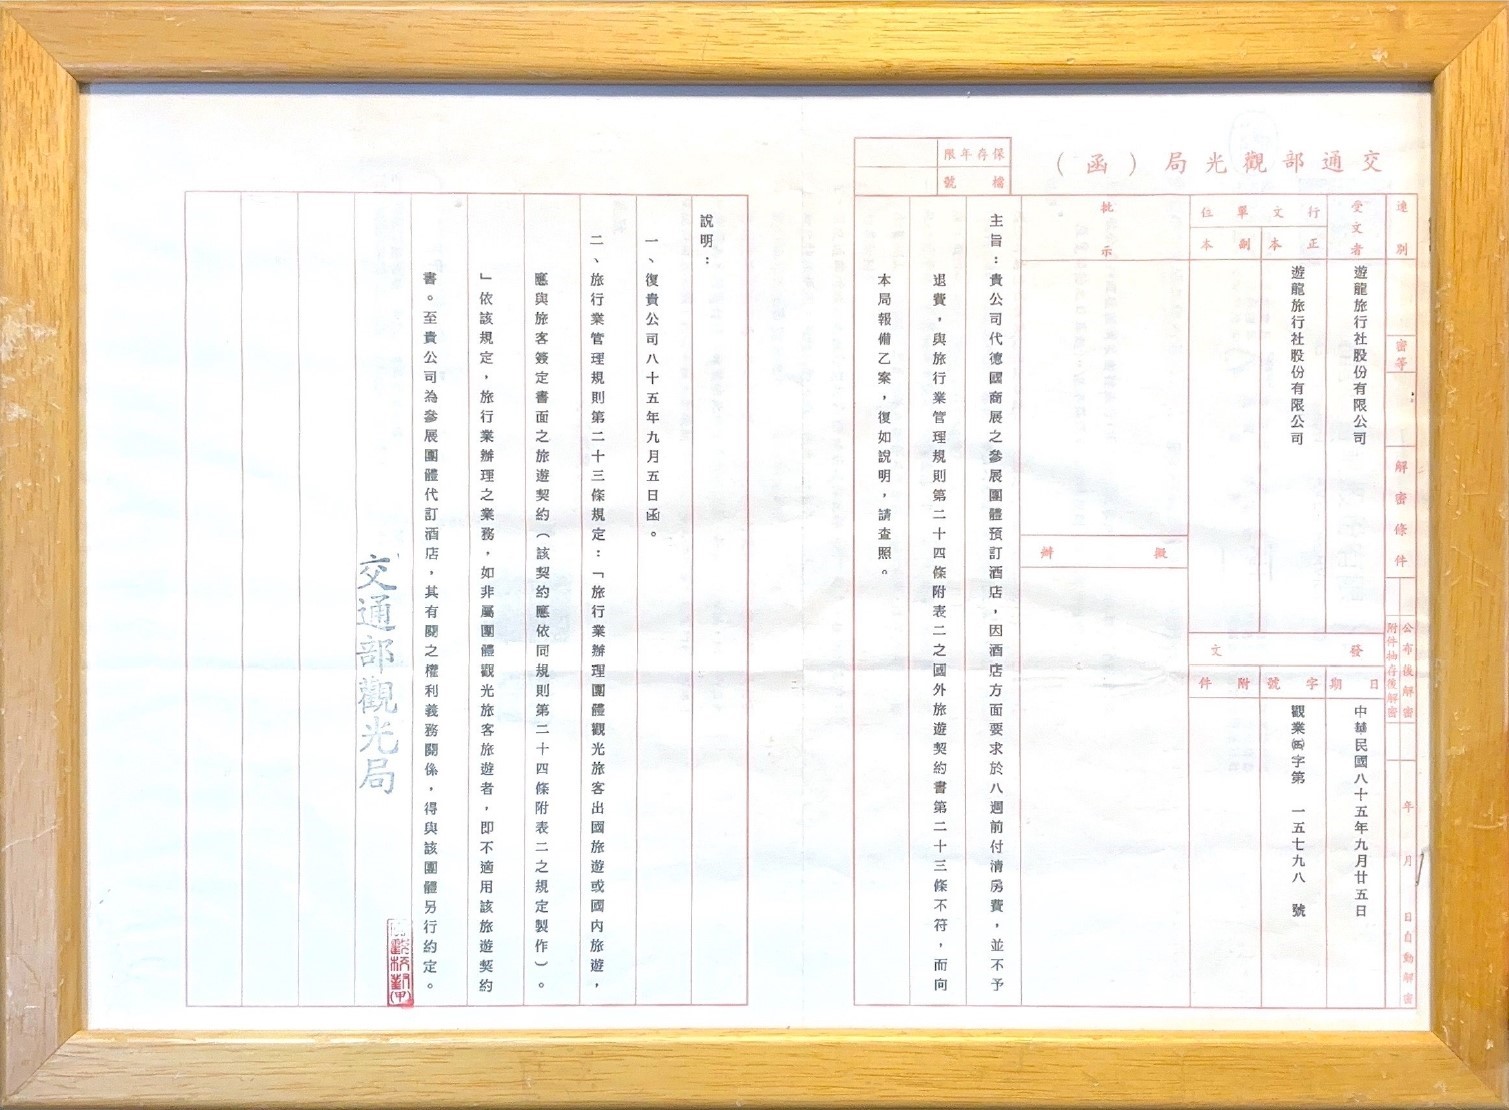 交通部觀光局（函）
保存年限
檔號
速別
密等
解密條件
公布後解密
附件抽存後解密
年月日自動解密
受文者
遊龍旅行社股份有限公司
行文單位
正本
遊龍旅行社股份有限公司
副本
發文
日期
中華民國八十五年九月廿五日
字號
觀業㈣字第　一五七九八　號
附件
批示
擬辦
主旨：貴公司代德國商展之參展團體預訂酒店，因酒店方面要求於八週前付清房費，並不予
退費，與旅行業管理規則第二十四條附表二之國外旅遊契約書第二十三條不符，而向
本局報備乙案，復如說明，請查照。
說明：
一、復貴公司八十五年九月五日函。
二、旅行業管理規則第二十三條規定：「旅行業辦理團體觀光旅客出國旅遊或國內旅遊，
應與旅客簽定書面之旅遊契約（該契約應依同規則第二十四條附表二之規定製作）。
」依該規定，旅行業辦理之業務，如非屬團體觀光旅客旅遊者，即不適用該旅遊契約
書。至貴公司為參展團體代訂酒店，其有關之權利義務關係，得與該團體另行約定。
交通部觀光局